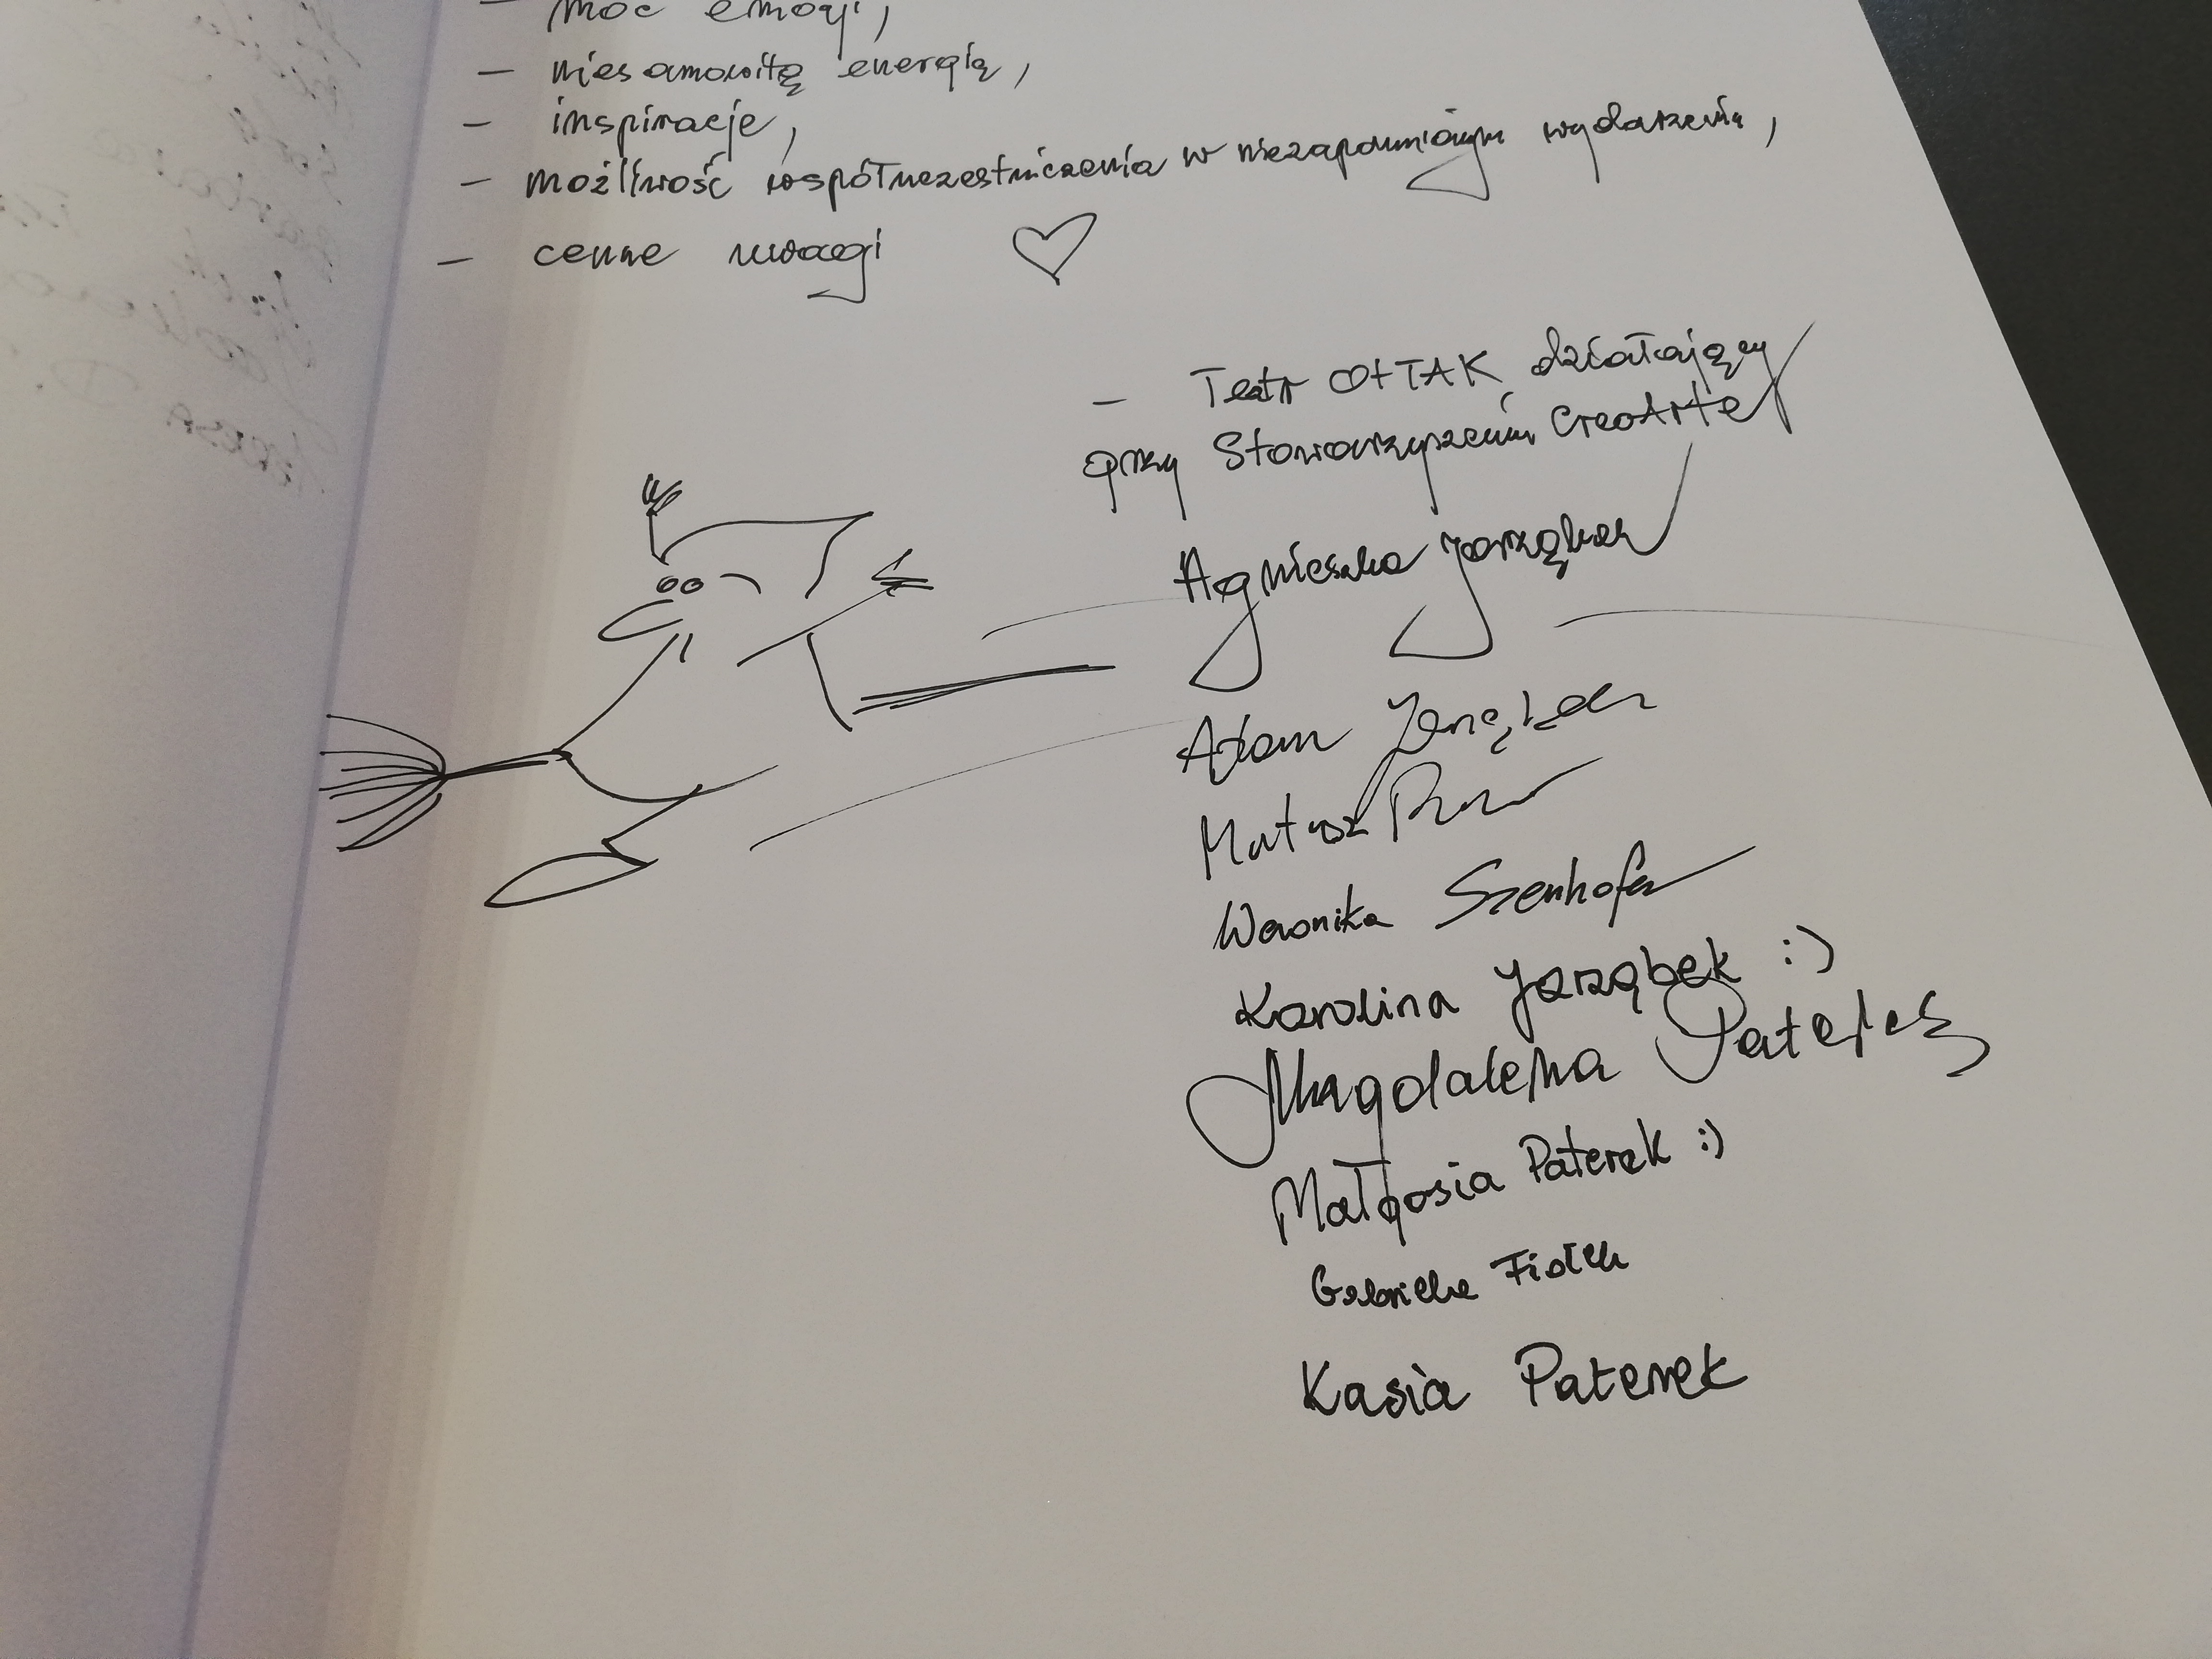 – moc emocji,
– niesamowitą energię,
– inspiracje,
– możliwość współuczestniczenia w niezapomnianym wydarzeniu,
– cenne uwagi ♡
– Teatr OtTAK działający
przy Stowarzyszeniu CreoArte
Agnieszka Jarząbek
Adam Jarząbek
Mateusz
Weronika Szenhofer
Karolina Jarząbek :)
Magdalena Paterek
Małgosia Paterek :)
Gabriela Fiołek
Kasia Paterek